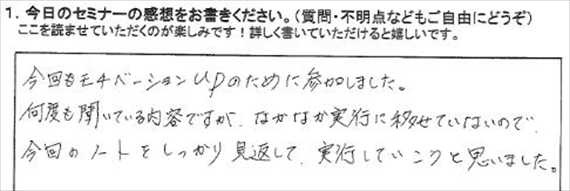 1. 今日のセミナーの感想をお書きください。(質問・不明点などもご自由にどうぞ)
ここを読ませていただくのが楽しみです!詳しく書いていただけると嬉しいです。
今回もモチベーションupのために参加しました。
何度も聞いている内容ですが、なかなか実行に移せていないので、
今回のノートをしっかり見返して、実行していこうと思いました。